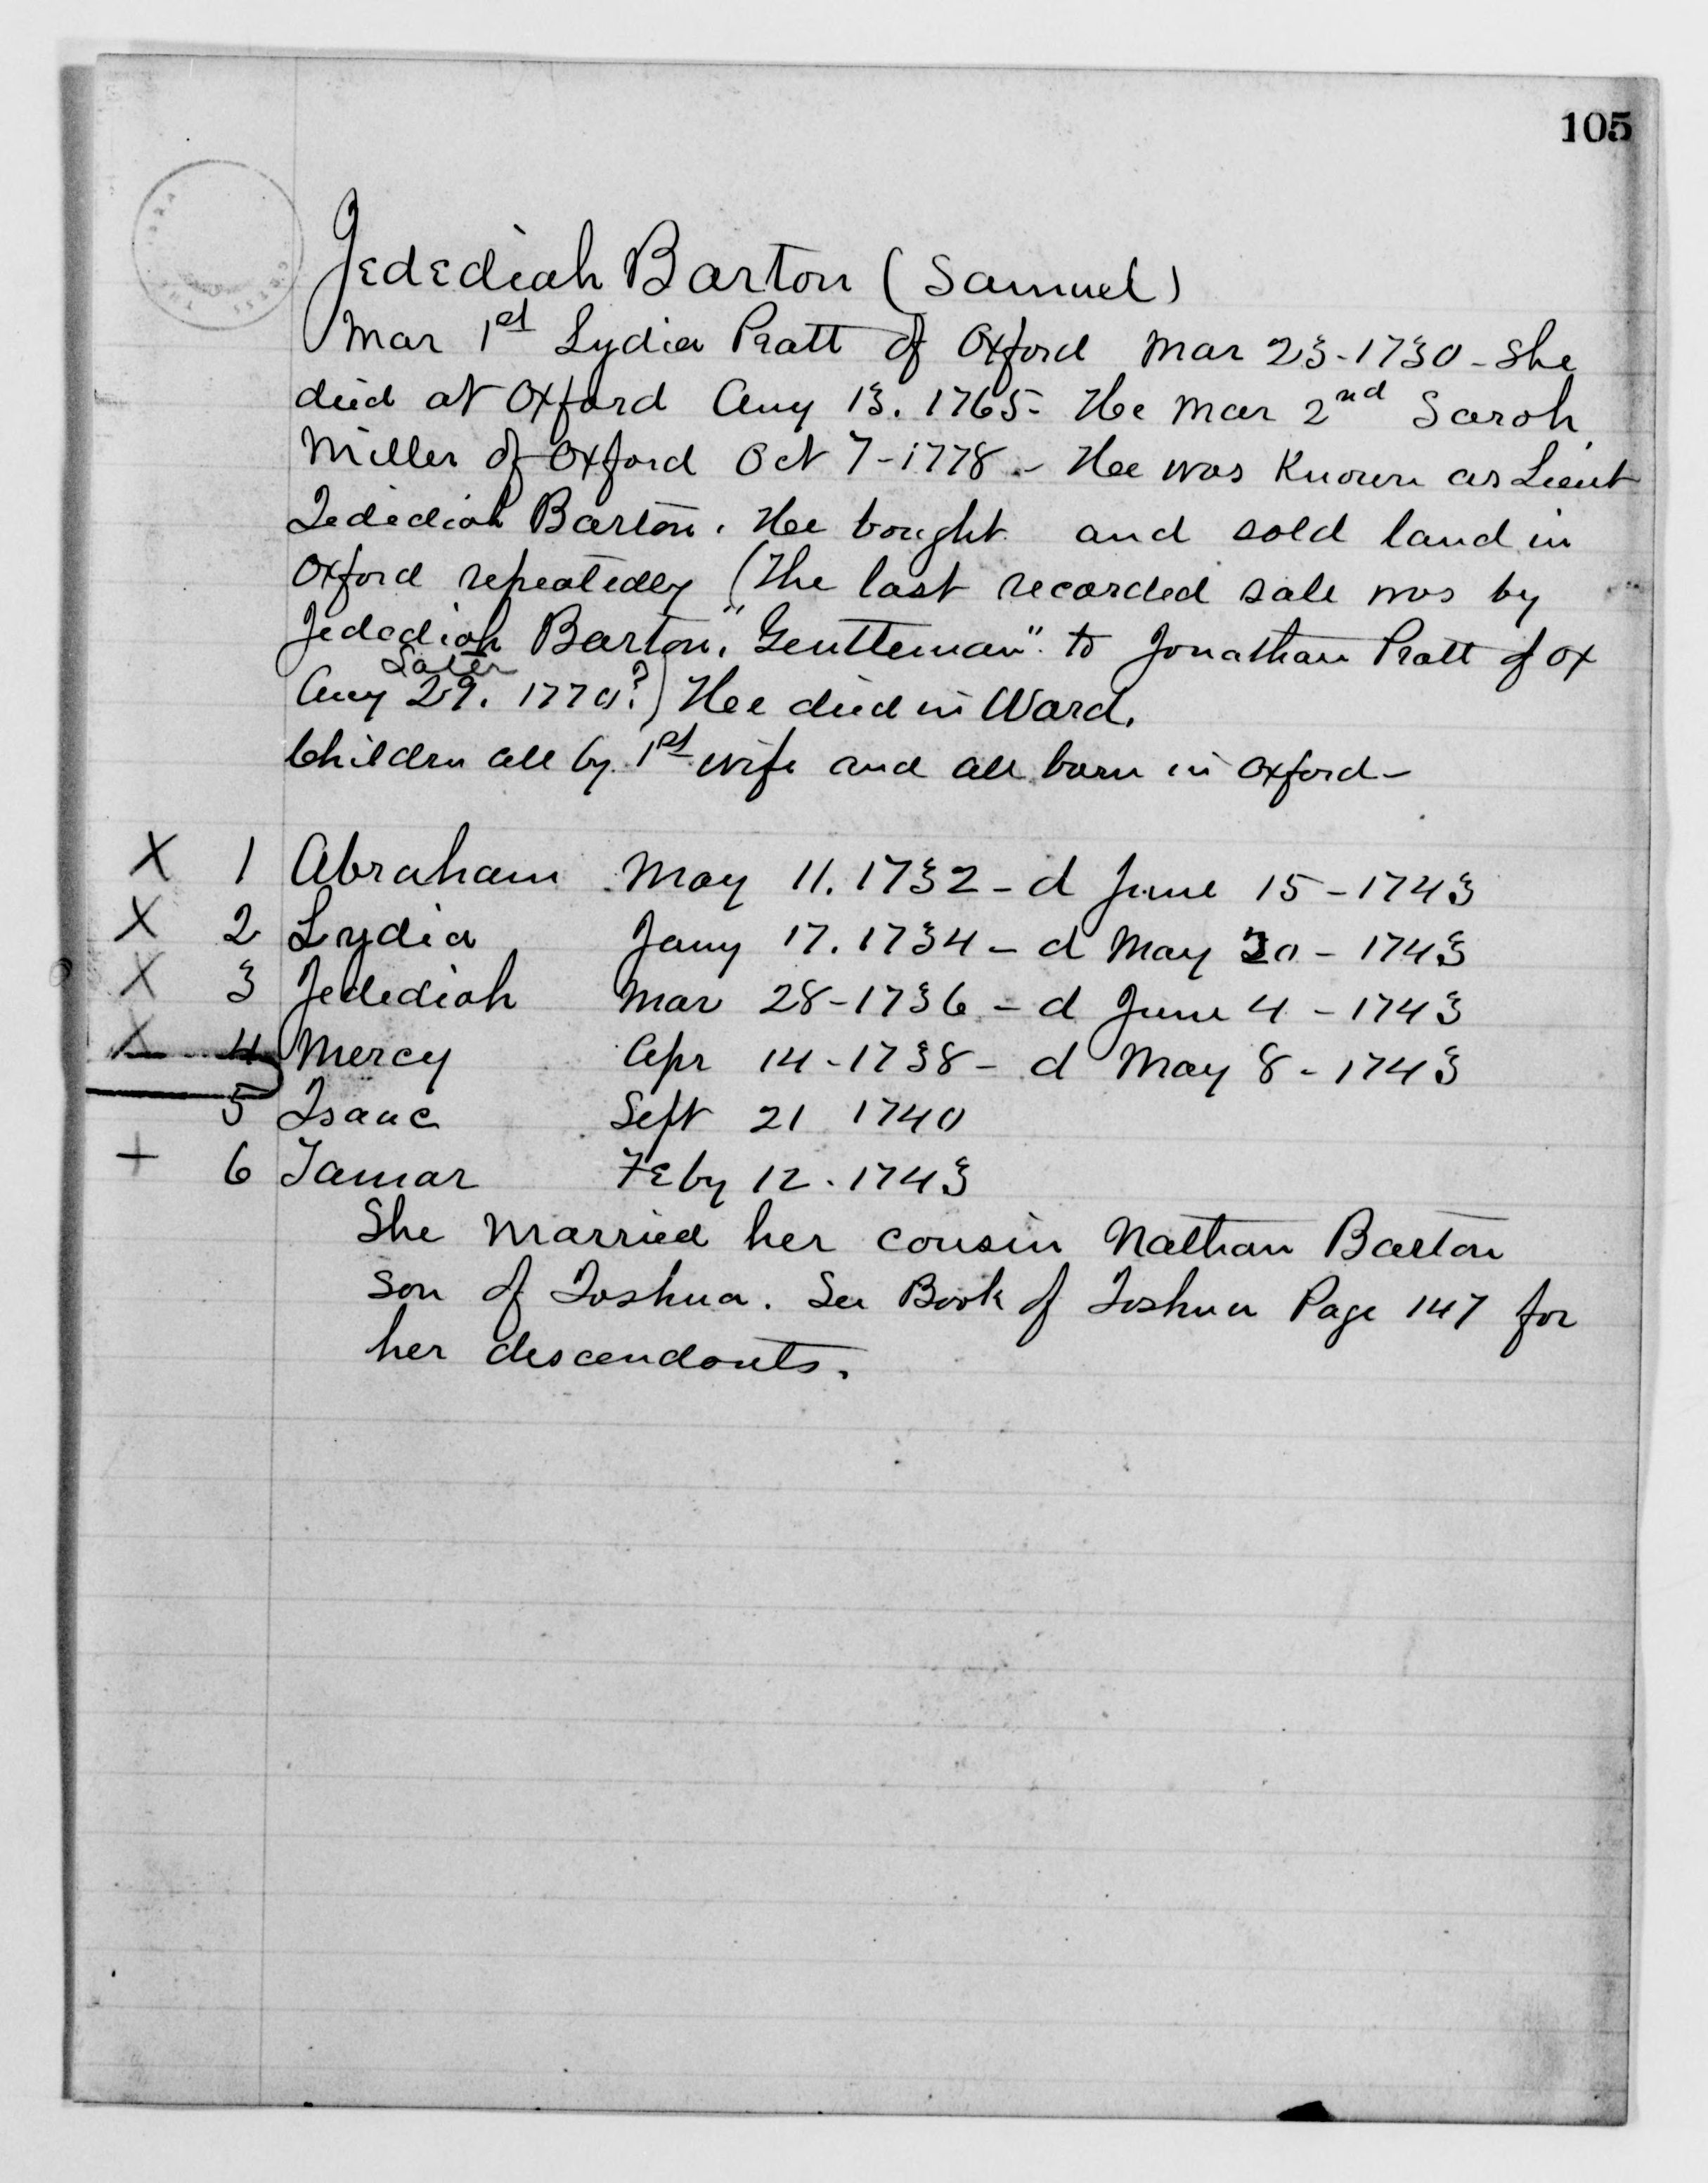 105
Jedediah Barton (Samuel)
Mar 1st Lydia Pratt of Oxford Mar 23-1730 - She
died at Oxford Aug 13. 1765- He mar 2nd Sarah
Miller of Oxford Oct 7-1778 - He was Known as Lieut
Jedediah Barton. He bought and sold land in
Oxford repeatedly (The last recorded sale was by
Jedediah Barton, "Gentleman" to Jonathan Pratt of Ox
Later
Aug 29. 1770?) He died in Ward.
Children all by 1st wife and all born in Oxford-
X 1 Abraham May 11. 1732 - d June 15 - 1743
X 2 Lydia Jany 17. 1734 - d May 30 - 1743
X 3 Jedediah Mar 28-1736 - d June 4 - 1743
X 4 Mercy Apr 14-1738 - d May 8 - 1743
5 Isaac Sept 21 1740
+ 6 Tamar Feby 12. 1743
She married her cousin Nathan Barton
son of Joshua. See Book of Joshua Page 147 for
her descendants.